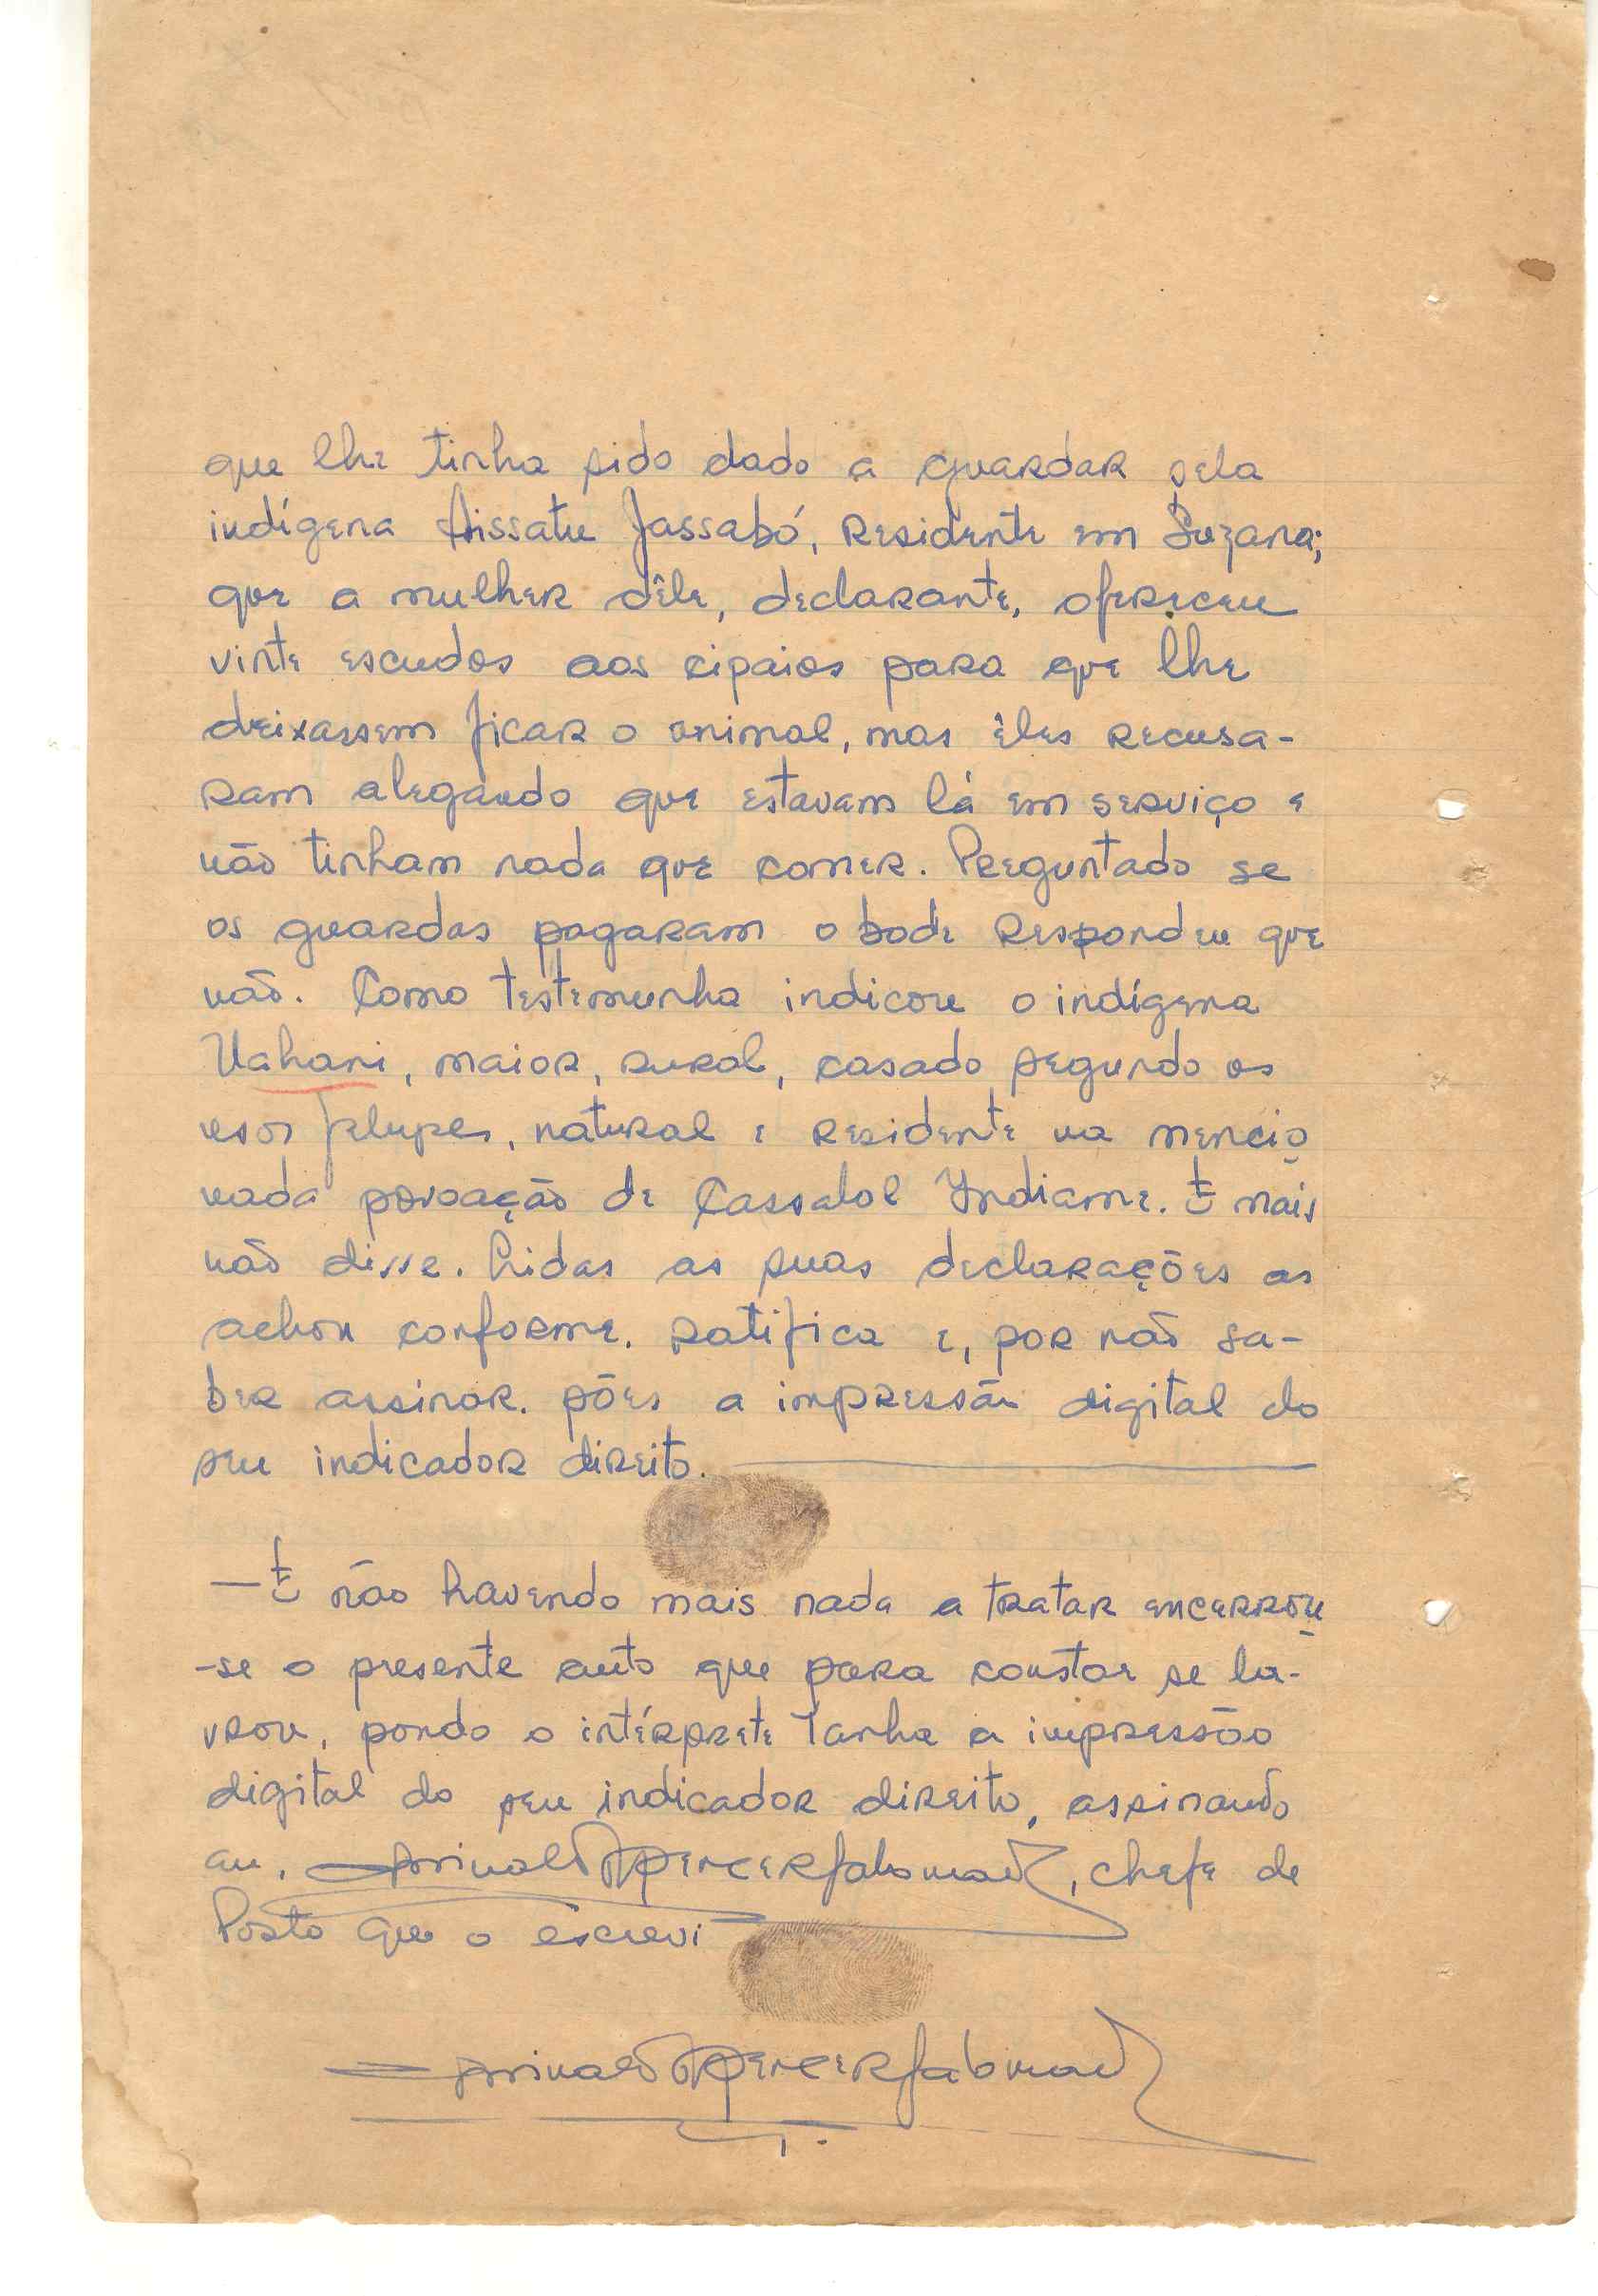 que lhe tinha sido dado a guardar pela
indígena Aissatu Jassabó, residente em Suzana;
que a mulher dêle, declarante, ofereceu
vinte escudos aos cipaios para que lhe
deixassem ficar o animal, mas êles recusa-
ram alegando que estavam lá em serviço e
não tinham nada que comer. Perguntado se
os guardas pagaram o bode respondeu que
não. Como testemunha indicou o indígena
Uahani, maior, rural, casado segundo os
usos felupes, natural e residente na mencio
nada povoação de Cassalol Yndiame. E mais
não disse. Lidas as suas declarações as
achou conforme. Ratifica e, por não sa-
ber assinar. pões a impressão digital do
seu indicador direito.
— E não havendo mais nada a tratar encerrou
-se o presente auto que para constar se la-
vrou, pondo o intérprete Tanha a impressão
digital do seu indicador direito, assinando
eu, , chefe de
Posto que o escrevi